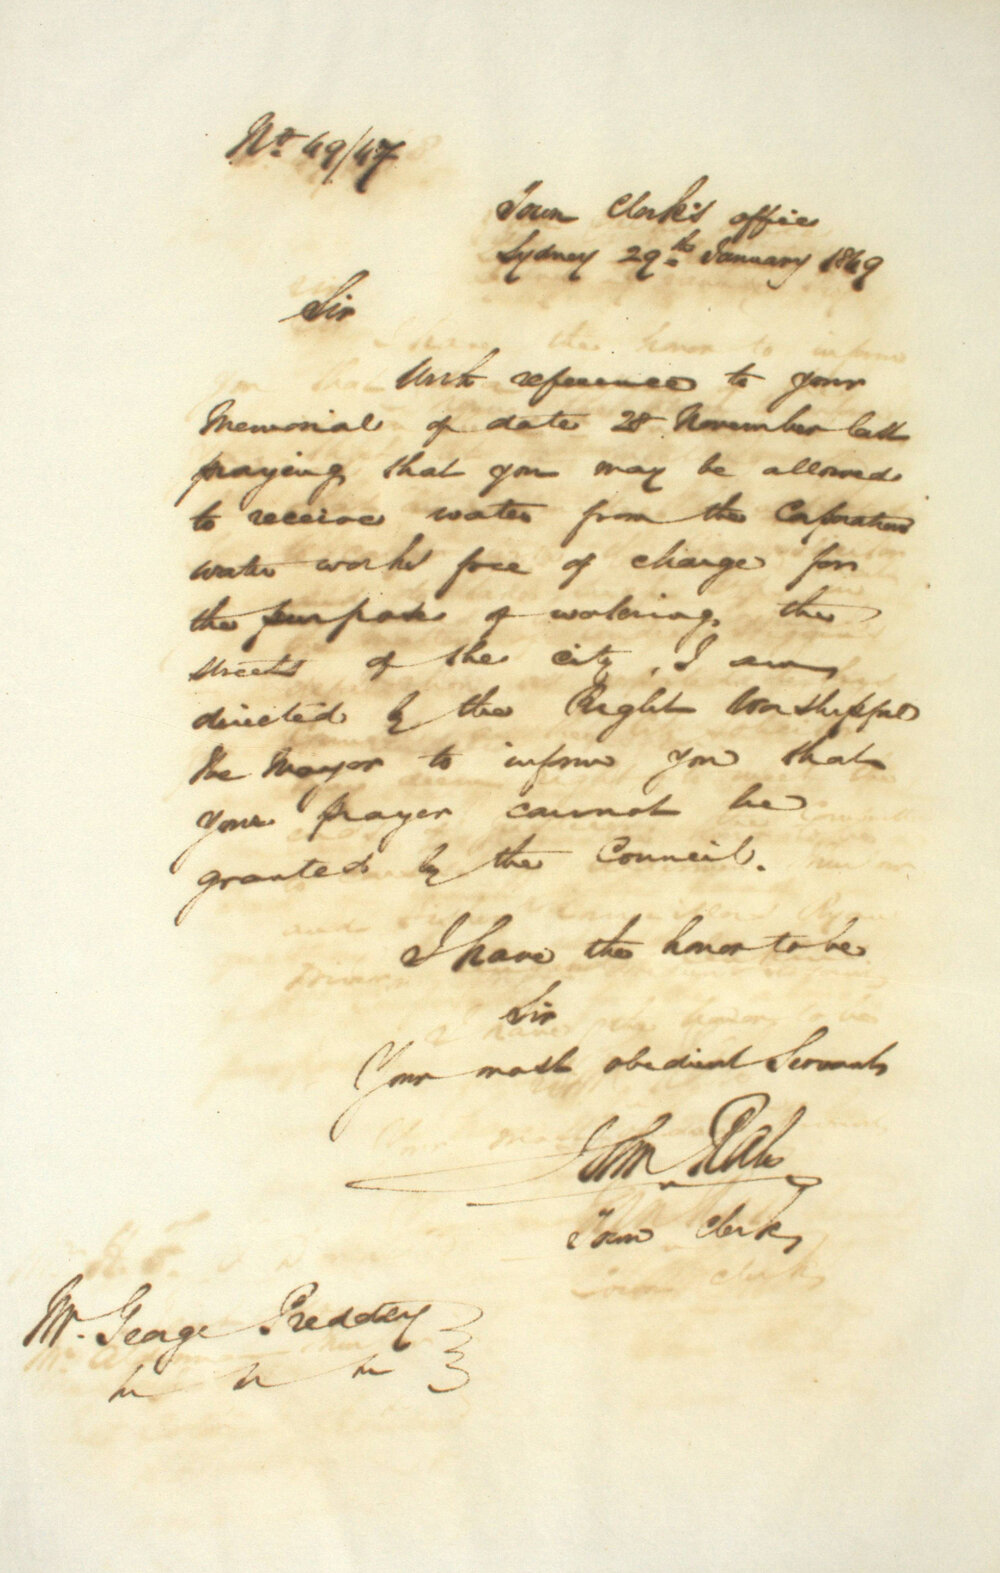 No 49/47
Town Clerk's office
Sydney 29th January 1849
Sir
With reference to your
Memorial of date 28 November last
praying that you may be allowed
to receive water from the Corporation
water works free of charge for
the purpose of watering the
streets of the city, I am
directed by the Right Worshipful
the Mayor to inform you that
your prayer cannot be
granted by the Council.
I have the honor to be
Sir
Your most obedient Servant
John Rae
Town Clerk
Mr. George Preddey